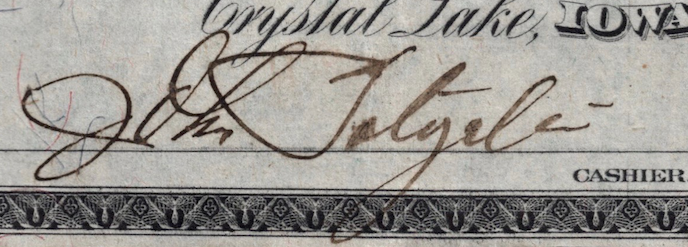 Crystal Lake, IOWA
John
CASHIER